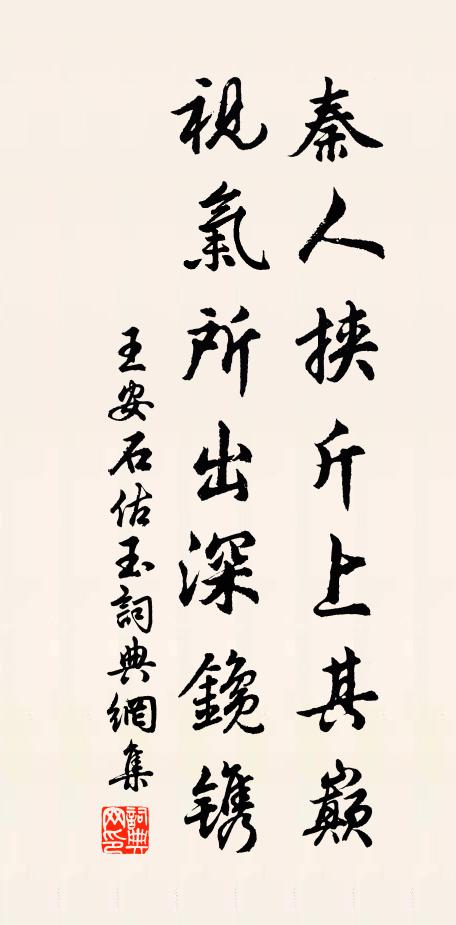 秦人挾斤上其巔
視氣所出深鑱鐫
王安石估玉詞典網集
詞典網印